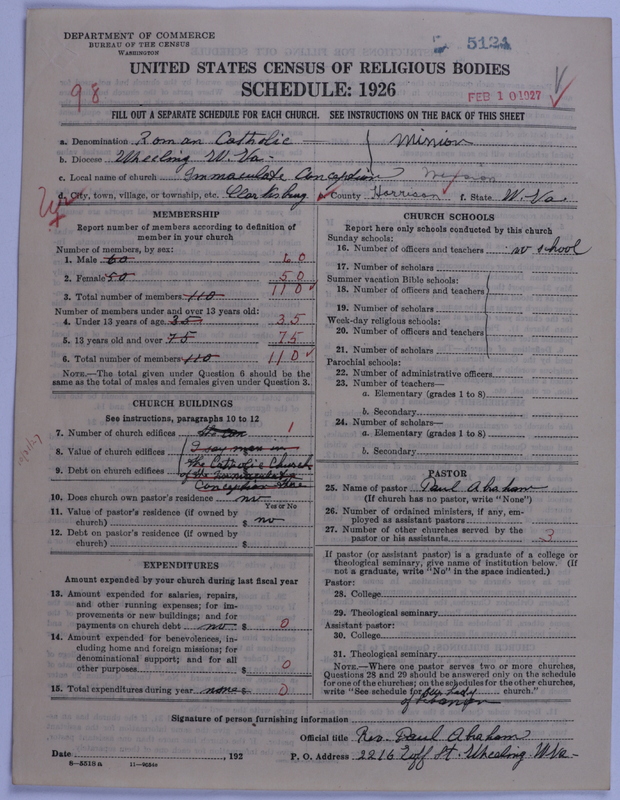 DEPARTMENT OF COMMERCE
BUREAU OF THE CENSUS
WASHINGTON
5124
UNITED STATES CENSUS OF RELIGIOUS BODIES
SCHEDULE: 1926
98
FEB 10 1927
FILL OUT A SEPARATE SCHEDULE FOR EACH CHURCH. SEE INSTRUCTIONS ON THE BACK OF THIS SHEET
a. Denomination Roman Catholic Mission
b. Diocese Wheeling W. Va.
c. Local name of church Immaculate Conception Mission
d. City, town, village, or township, etc. Clarksburg County Harrison f. State W. Va
MEMBERSHIP
Report number of members according to definition of
member in your church
Number of members, by sex:
1. Male 60 60
2. Female 50 50
3. Total number of members 110 110
Number of members under and over 13 years old:
4. Under 13 years of age 35 35
5. 13 years old and over 75 75
6. Total number of members 110 110
NOTE.—The total given under Question 6 should be
same as the total of males and females given under Question 3.
CHURCH BUILDINGS
See instructions, paragraphs 10 to 12
7. Number of church edifices 1
8. Value of church edifices I say mass in
9. Debt on church edifices the Catholic Church
of the Immaculate
Conception there
10. Does church own pastor's residence no
Yes or No
11. Value of pastor's residence (if owned by
church) $ no
12. Debt on pastor's residence (if owned by
church) $
EXPENDITURES
Amount expended by your church during last fiscal year
13. Amount expended for salaries, repairs,
and other running expenses; for im-
provements or new buildings; and for
payments on church debt no $ 0
14. Amount expended for benevolences, in-
cluding home and foreign missions; for
denominational support; and for all
other purposes $ 0
15. Total expenditures during year none $ 0
CHURCH SCHOOLS
Report here only schools conducted by this church
Sunday schools:
16. Number of officers and teachers no school
17. Number of scholars
Summer vacation Bible schools:
18. Number of officers and teachers
19. Number of scholars
Week-day religious schools:
20. Number of officers and teachers
21. Number of scholars
Parochial schools:
22. Number of administrative officers
23. Number of teachers—
a. Elementary (grades 1 to 8)
b. Secondary
24. Number of scholars—
a. Elementary (grades 1 to 8)
b. Secondary
PASTOR
25. Name of pastor Paul Abraham
(If church has no pastor, write "None")
26. Number of ordained ministers, if any, em-
ployed as assistant pastors
27. Number of other churches served by the
pastor or his assistants 3
If pastor (or assistant pastor) is a graduate of a college or
theological seminary, give name of institution below. (If
not a graduate, write "No" in the space indicated.)
Pastor:
28. College
29. Theological seminary
Assistant pastor:
30. College
31. Theological seminary
NOTE.—Where one pastor serves two or more churches,
Questions 28 and 29 should be answered only on the schedule
for one of the churches; on the schedules for the other churches,
write "See schedule for Our Lady church."
of Lebanon
Signature of person furnishing information
Official title Rev. Paul Abraham
Date , 192 P. O. Address 2216 Eoff St. Wheeling W. Va.
8—5518 a